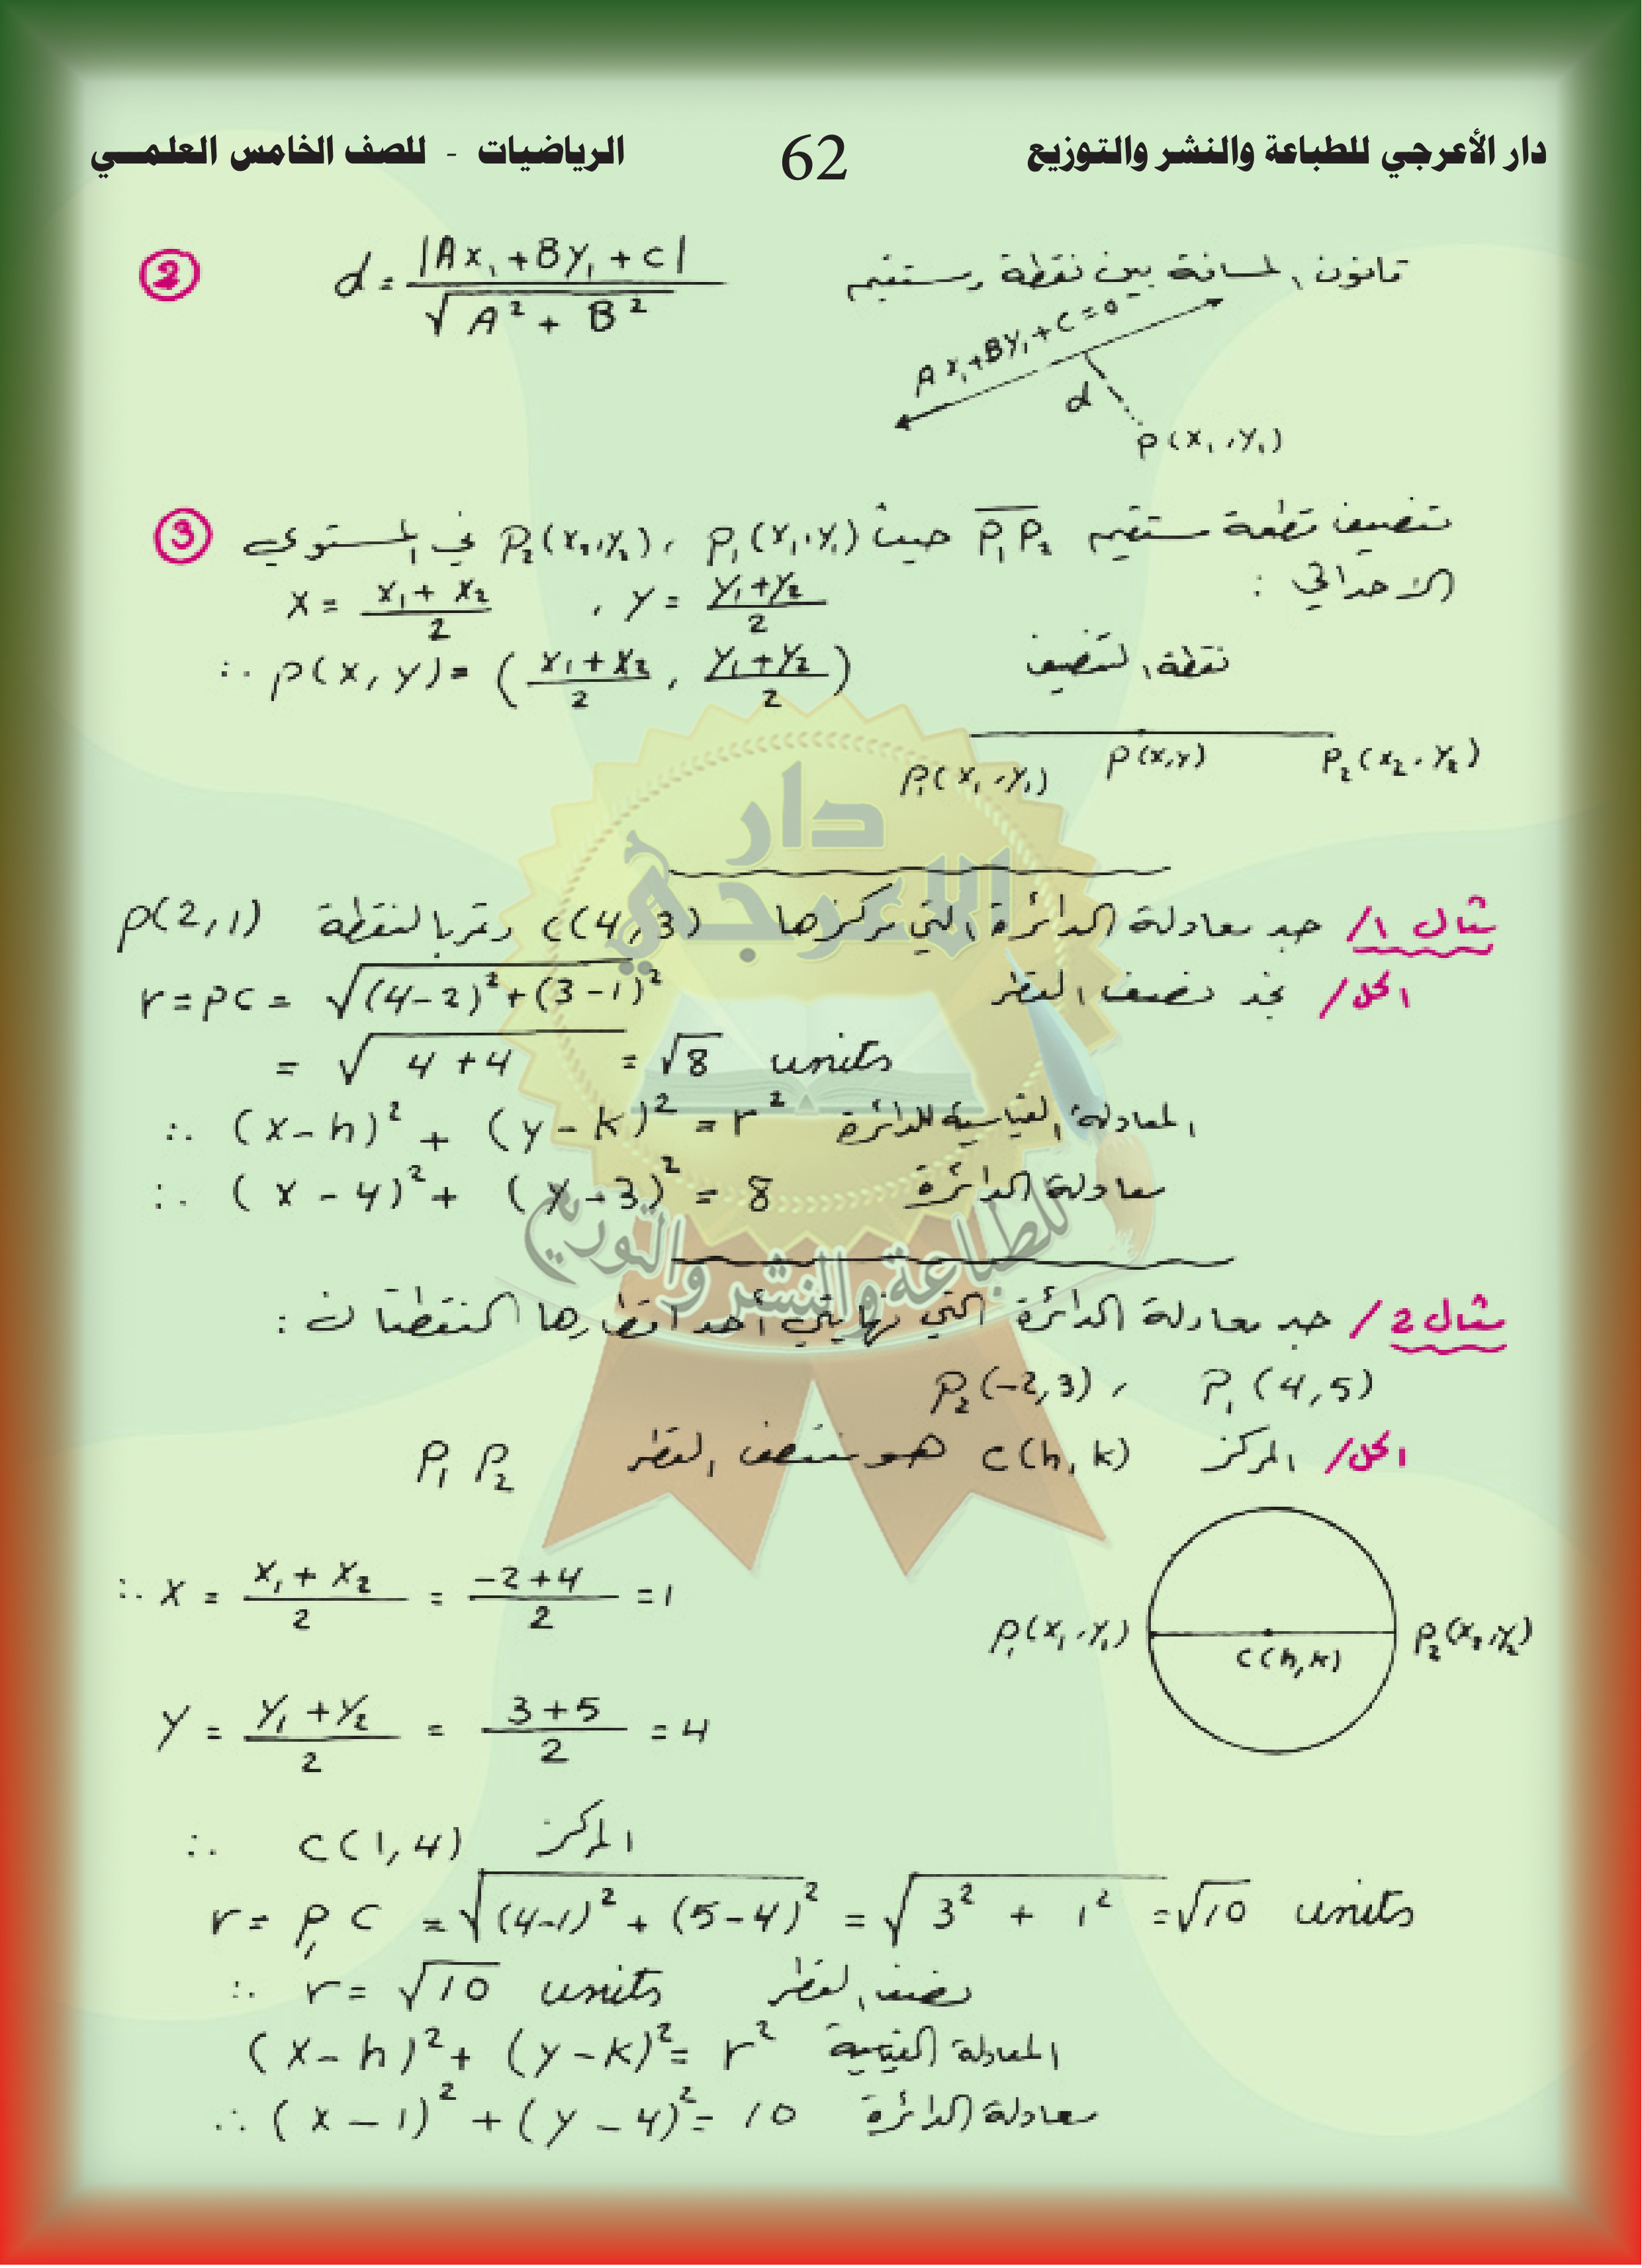 دار الأعرجي للطباعة والنشر والتوزيع 62 الرياضيات - للصف الخامس العلمـــي
② قانون المسافة بين نقطة ومستقيم d = |Ax₁+By₁+C| / √(A² + B²)
Ax₁+By₁+C=0
d
P(x₁,y₁)
③ تنصيف قطعة مستقيم P₁P₂ حيث P₁(x₁,y₁) ، P₂(x₂,y₂) في المستوي
الاحداثي :
x = (x₁+x₂)/2 , y = (y₁+y₂)/2
نقطة التنصيف ∴ P(x,y) = ((x₁+x₂)/2 , (y₁+y₂)/2)
P₁(x₁,y₁) P(x,y) P₂(x₂,y₂)
دار
الاعرجي
للطباعة والنشر والتوزيع
مثال 1/ جد معادلة الدائرة التي مركزها C(4,3) وتمر بالنقطة P(2,1)
الحل/ نجد نصف القطر r = PC = √((4-2)²+(3-1)²)
= √(4+4) = √8 units
المعادلة القياسية للدائرة ∴ (x-h)² + (y-k)² = r²
معادلة الدائرة ∴ (x-4)² + (y-3)² = 8
مثال 2/ جد معادلة الدائرة التي نهايتي أحد اقطارها النقطتان :
P₁(4,5) ، P₂(-2,3)
الحل/ المركز C(h,k) هو منتصف القطر P₁P₂
∴ x = (x₁+x₂)/2 = (-2+4)/2 = 1
P₁(x₁,y₁) C(h,k) P₂(x₂,y₂)
y = (y₁+y₂)/2 = (3+5)/2 = 4
∴ C(1,4) المركز
r = P₁C = √((4-1)²+(5-4)²) = √(3² + 1²) = √10 units
∴ r = √10 units نصف القطر
(x-h)² + (y-k)² = r² المعادلة القياسية
∴ (x-1)² + (y-4)² = 10 معادلة الدائرة